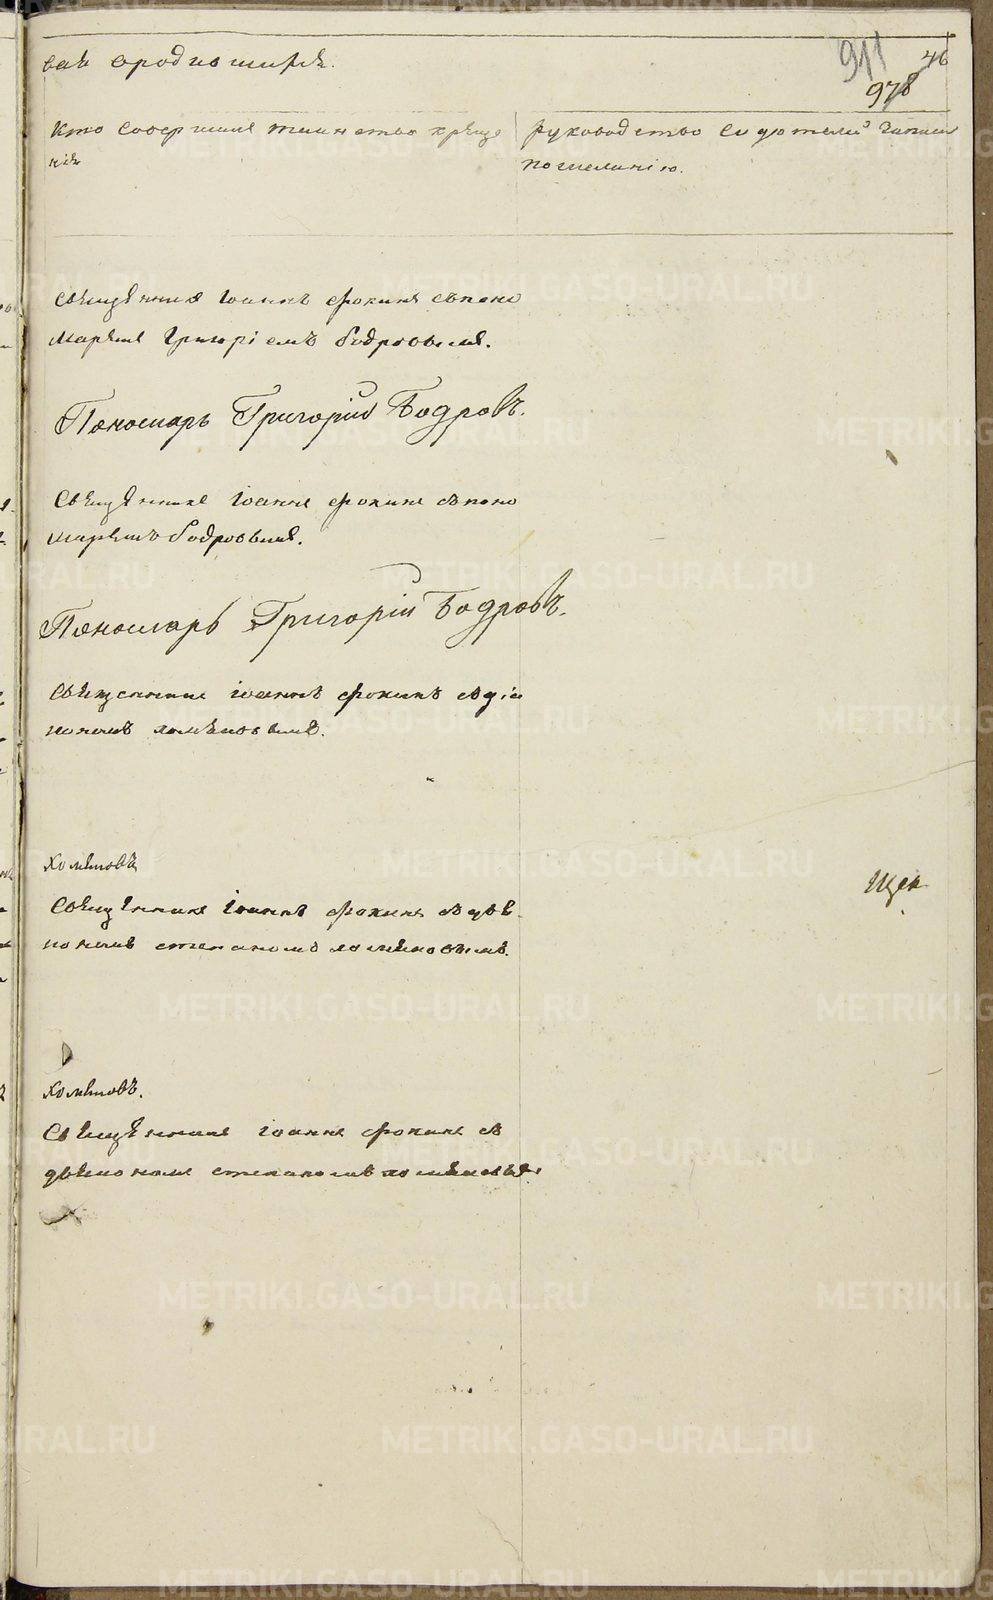 вая о родившихся.
911
46
978
Кто совершилъ таинство креще
нія
рукоприкладство свидѣтелей записи
по желанію.
Священникъ Іоаннъ Фокинъ съ поно
маремъ Григоріемъ Бодровымъ.
Пономарь Григорій Бодровъ.
Священникъ Іоаннъ Фокинъ съ поно
маремъ Бодровымъ.
Пономарь Григорій Бодровъ.
Священникъ Іоаннъ Фокинъ съ діа
кономъ Хомяковымъ.
Хомяковъ
Священникъ Іоаннъ Фокинъ съ дья
кономъ Степаномъ Хомяковымъ.
Хомяковъ.
Священникъ Іоаннъ Фокинъ съ
дьякономъ Степаномъ Хомяковымъ.
METRIKI.GASO-URAL.RU